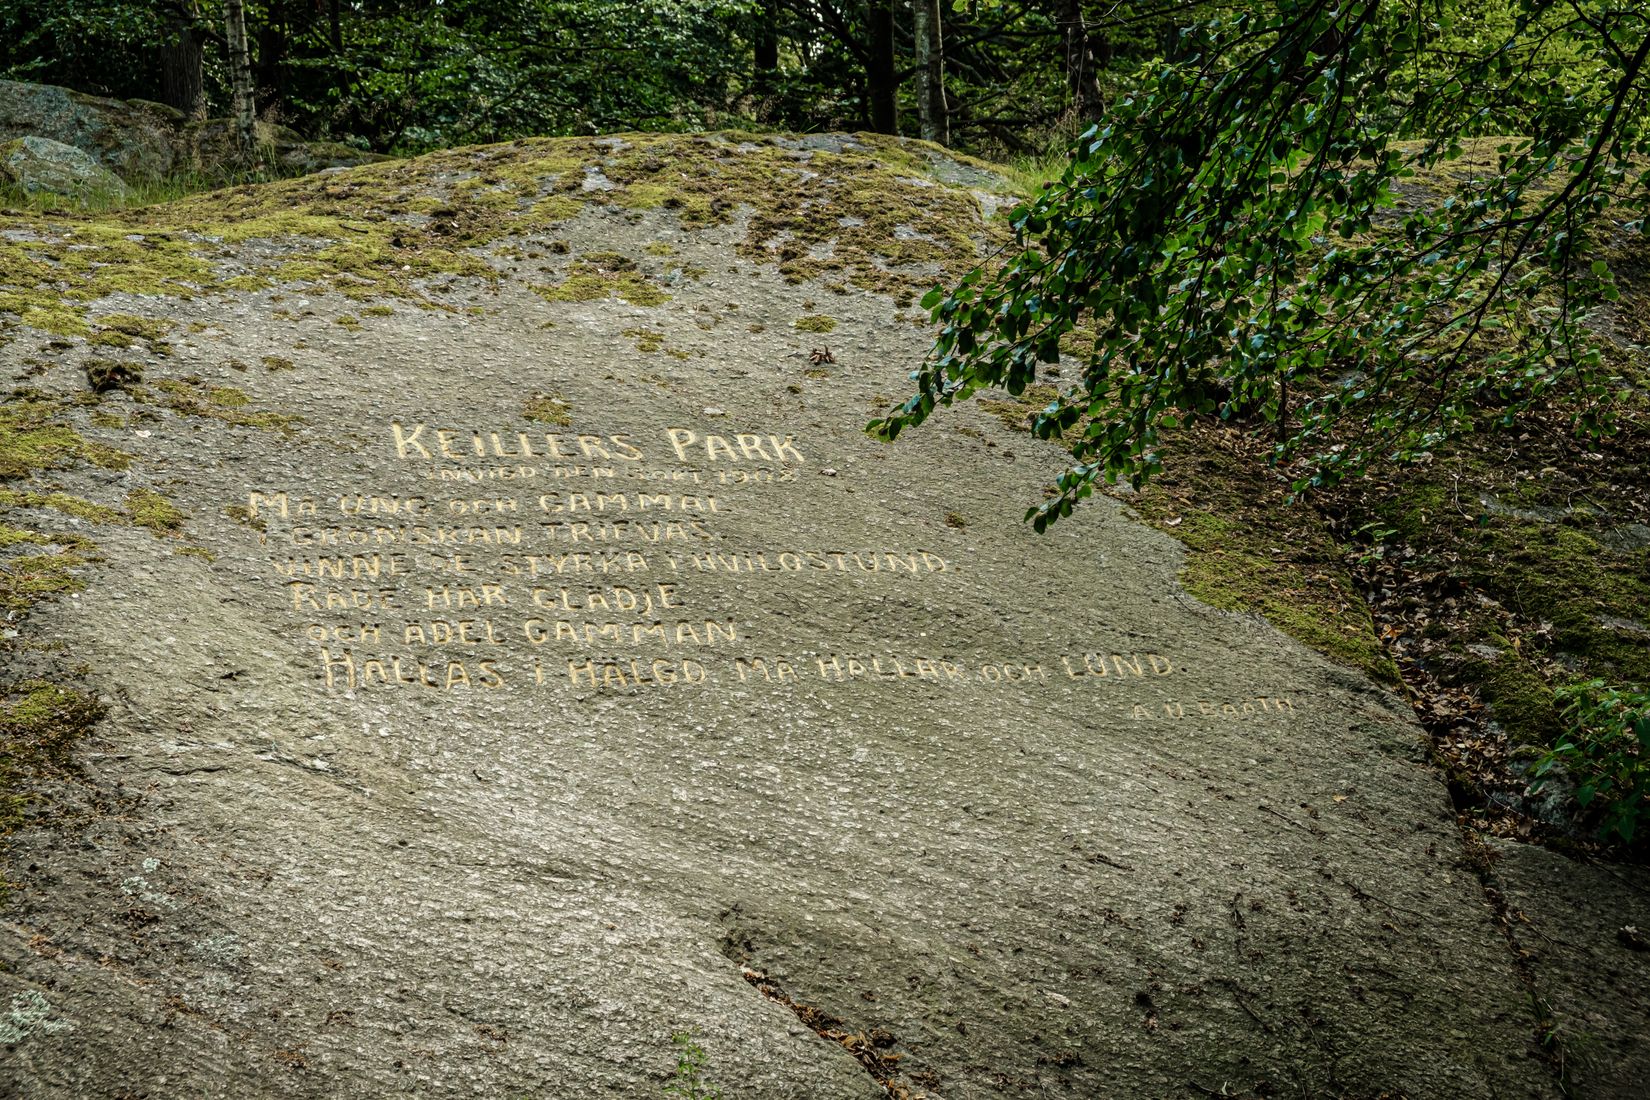 KEILLERS PARK
INVIGD DEN 3 OKT. 1908
MÅ UNG OCH GAMMAL
I GRÖNISKAN TRIFVAS.
VINNE DE STYRKA I HVILOSTUND.
RÅDE HÄR GLÄDJE
OCH ÄDEL GAMMAN.
HÅLLAS I HÄLGD MÅ HÄLLAR OCH LUND.
A.U. BÅÅTH